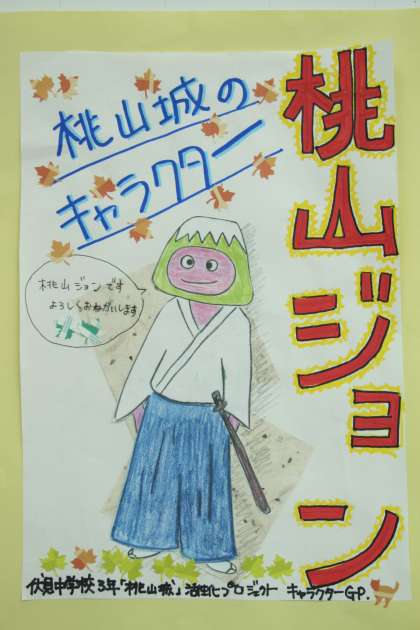 桃山城の
キャラクター
桃山ジョン
桃山ジョンです
よろしくおねがいします
伏見中学校3年「桃山城」活性化プロジェクト キャラクターGP.